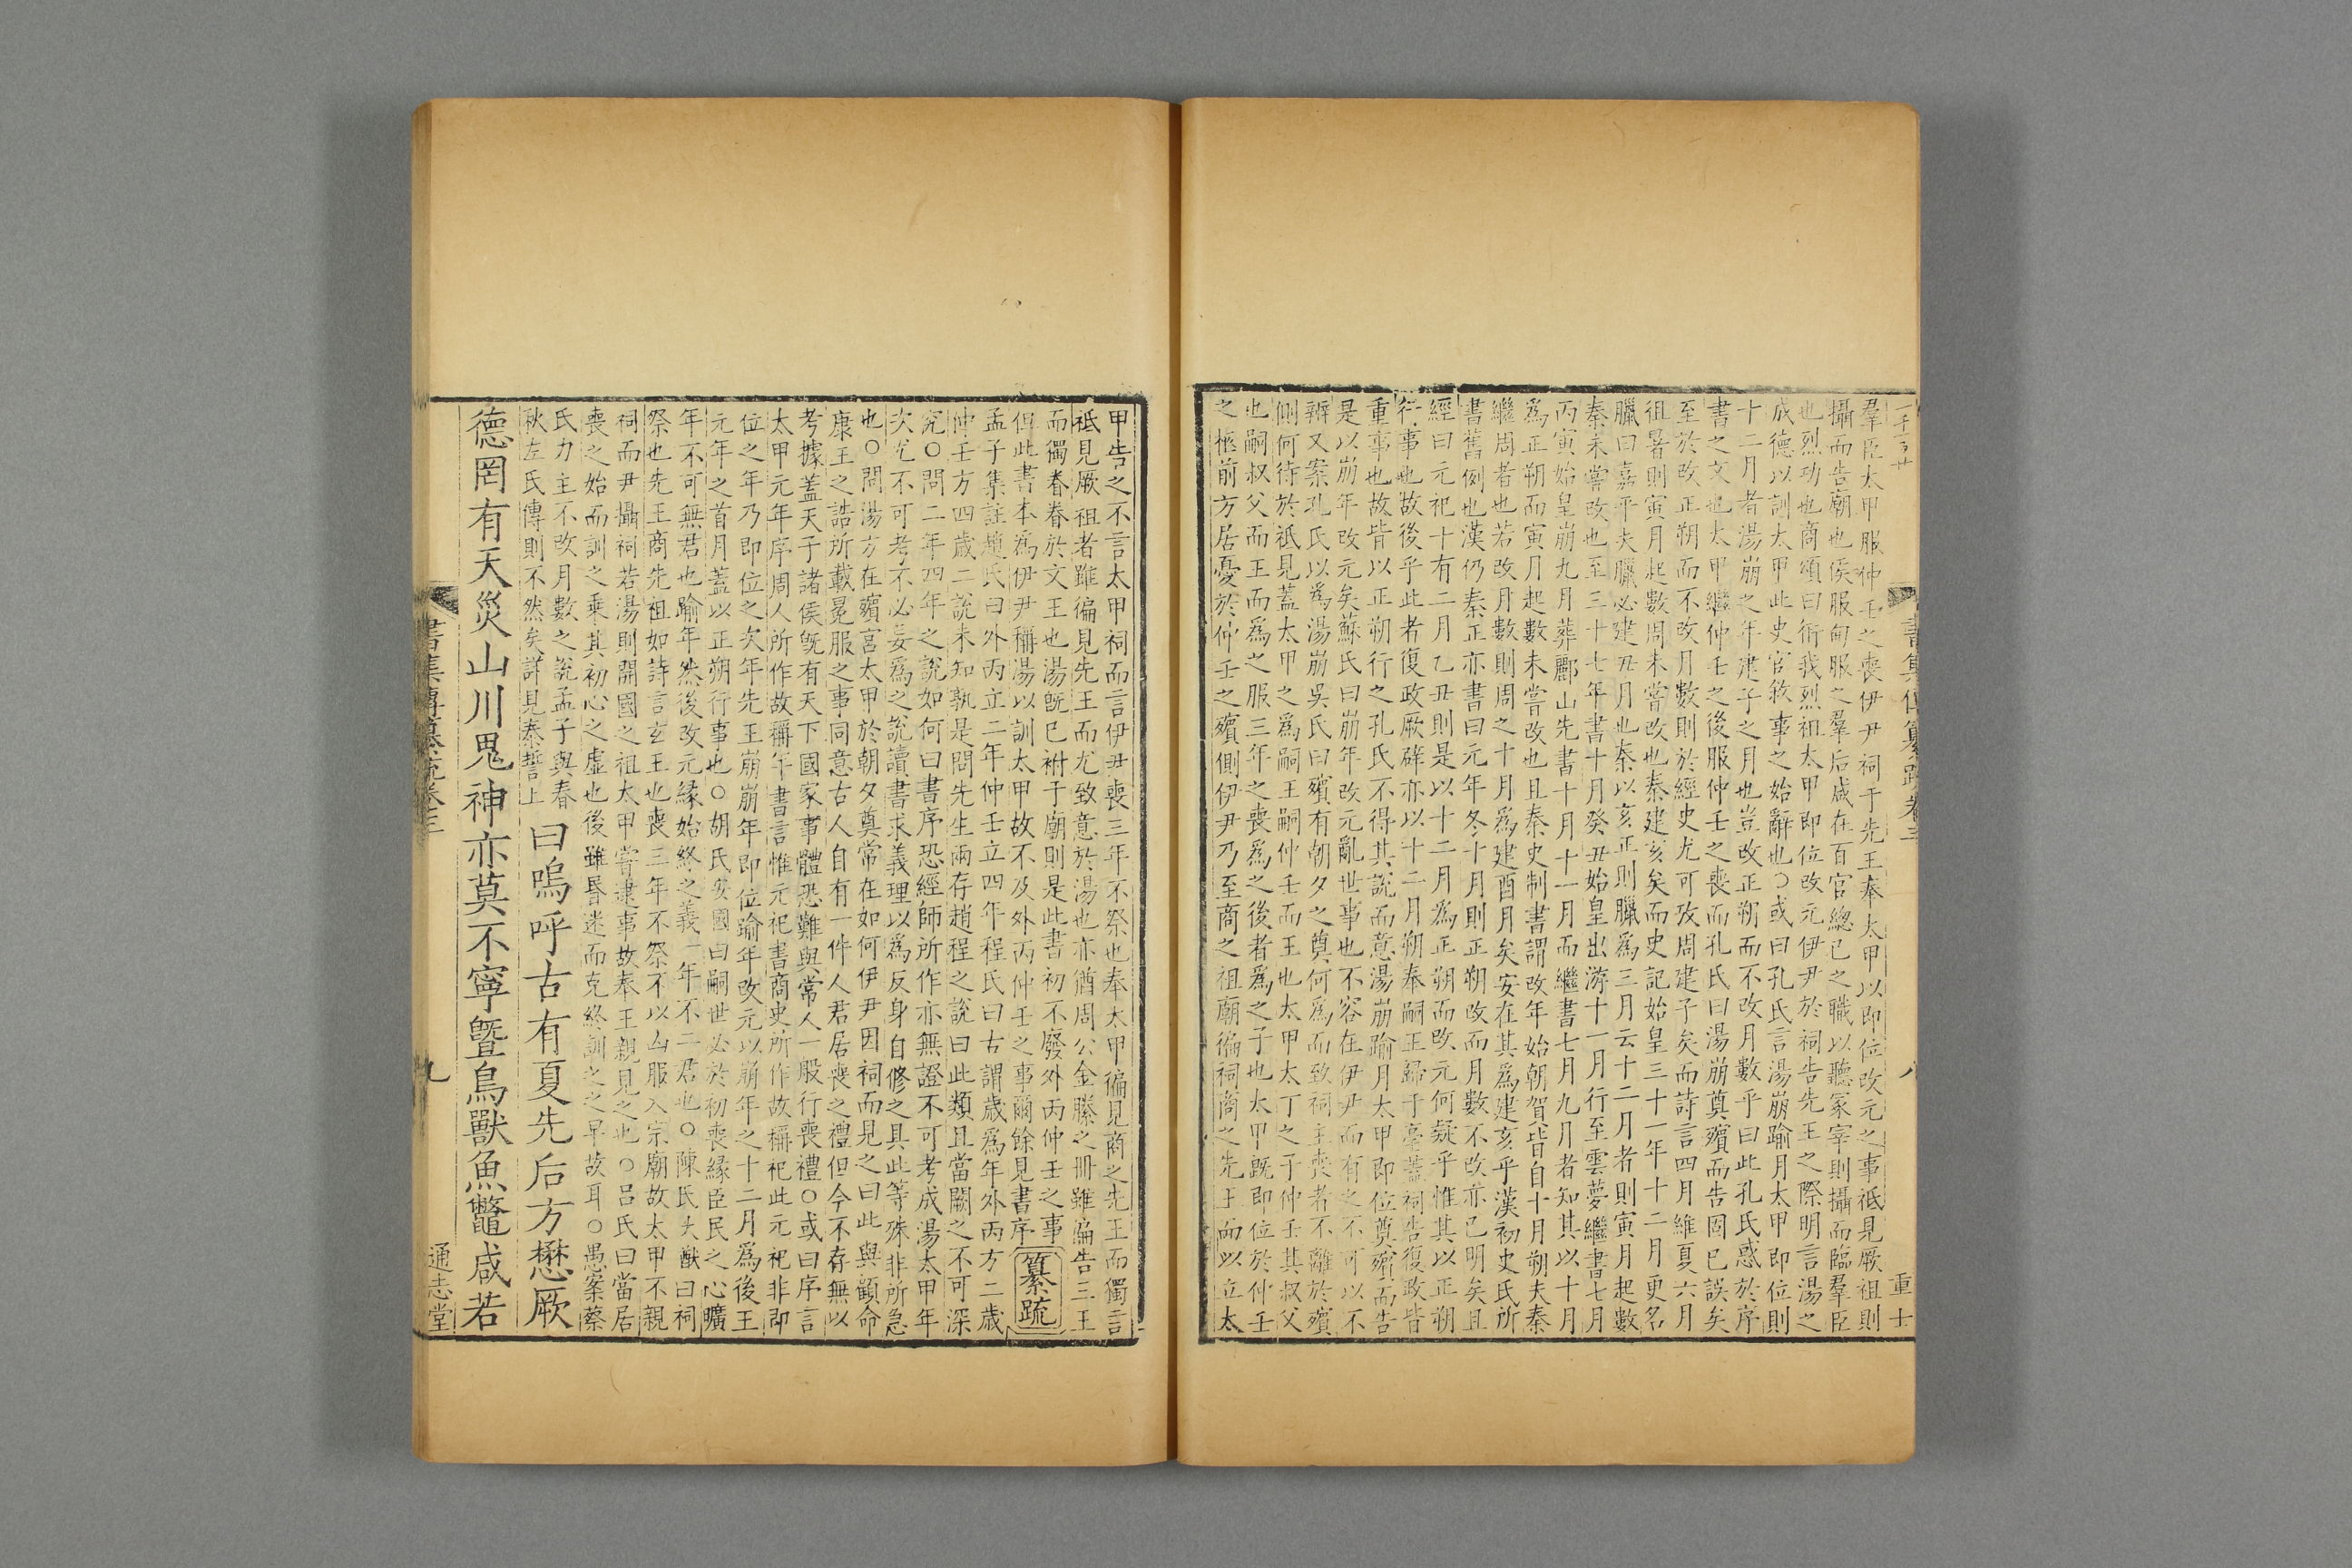 書集傳纂疏卷三
八
羣臣太甲服仲壬之喪伊尹祠于先王奉太甲以即位改元之事祗見厥祖則
攝而告廟也侯服甸服之羣后咸在百官總已之職以聽冢宰則攝而臨羣臣
也烈功也商頌曰衎我烈祖太甲即位改元伊尹於祠告先王之際明言湯之
成德以訓太甲此史官敘事之始辭也○或曰孔氏言湯崩踰月太甲即位則
十二月者湯崩之年建子之月也豈改正朔而不改月數乎曰此孔氏惑於序
書之文也太甲繼仲壬之後服仲壬之喪而孔氏曰湯崩奠殯而告固已誤矣
至於改正朔而不改月數則於經史尤可攷周建子矣而詩言四月維夏六月
徂暑則寅月起數周未嘗改也秦建亥矣而史記始皇三十一年十二月更名
臘曰嘉平夫臘必建丑月也秦以亥正則臘爲三月云十二月者則寅月起數
秦未嘗改也至三十七年書十月癸丑始皇出游十一月行至雲夢繼書七月
丙寅始皇崩九月葬酈山先書十月十一月而繼書七月九月者知其以十月
爲正朔而寅月起數未嘗改也且秦史制書謂改年始朝賀皆自十月朔夫秦
繼周者也若改月數則周之十月爲建酉月矣安在其爲建亥乎漢初史氏所
書舊例也漢仍秦正亦書曰元年冬十月則正朔改而月數不改亦已明矣且
經曰元祀十有二月乙丑則是以十二月爲正朔而改元何疑乎惟其以正朔
行事也故後乎此者復政厥辟亦以十二月朔奉嗣王歸于亳蓋祠告復政皆
重事也故皆以正朔行之孔氏不得其說而意湯崩踰月太甲即位奠殯而告
是以崩年改元矣蘇氏曰崩年改元亂世事也不容在伊尹而有之不可以不
辨又案孔氏以爲湯崩吳氏曰殯有朝夕之奠何爲而致祠主喪者不離於殯
側何待於祗見蓋太甲之爲嗣王嗣仲壬而王也太甲太丁之子仲壬其叔父
也嗣叔父而王而爲之服三年之喪爲之後者爲之子也太甲旣即位於仲壬
之柩前方居憂於仲壬之殯側伊尹乃至商之祖廟徧祠商之先王而以立太
甲告之不言太甲祠而言伊尹喪三年不祭也奉太甲徧見商之先王而獨言
祗見厥祖者雖徧見先王而尤致意於湯也亦猶周公金縢之冊雖徧告三王
而獨眷眷於文王也湯旣已祔于廟則是此書初不廢外丙仲壬之事
但此書本爲伊尹稱湯以訓太甲故不及外丙仲壬之事爾餘見書序纂疏
孟子集註趙氏曰外丙立二年仲壬立四年程氏曰古謂歲爲年外丙方二歲
仲壬方四歲二說未知孰是問先生兩存趙程之說曰此類且當闕之不可深
究○問二年四年之說如何曰書序恐經師所作亦無證不可考成湯太甲年
次尤不可考不必妄爲之說讀書求義理以爲反身自修之具此等殊非所急
也○問湯方在殯宮太甲於朝夕奠常在如何伊尹因祠而見之曰此與顧命
康王之誥所載冕服之事同意古人自有一件人君居喪之禮但今不存無以
考據蓋天子諸侯旣有天下國家事體恐難與常人一般行喪禮○或曰序言
太甲元年序周人所作故稱年書言惟元祀書商史所作故稱祀此元祀非即
位之年乃即位之次年先王崩崩年即位踰年改元以崩年之十二月爲後王
元年之首月蓋以正朔行事也○胡氏安國曰嗣世必於初喪緣臣民之心曠
年不可無君也踰年然後改元緣始終之義一年不二君也○陳氏大猷曰祠
祭也先王商先祖如詩言玄王也喪三年不祭不以凶服入宗廟故太甲不親
祠而尹攝祠若湯則開國之祖太甲嘗逮事故奉王親見之也○呂氏曰當居
喪之始而訓之乘其初心之虛也後雖昏迷而克終訓之之早故耳○愚案蔡
氏力主不改月數之說孟子與春
秋左氏傳則不然矣詳見泰誓上
曰嗚呼古有夏先后方懋厥
德罔有天災山川鬼神亦莫不寧曁鳥獸魚鼈咸若
書集傳纂疏卷三
九
通志堂